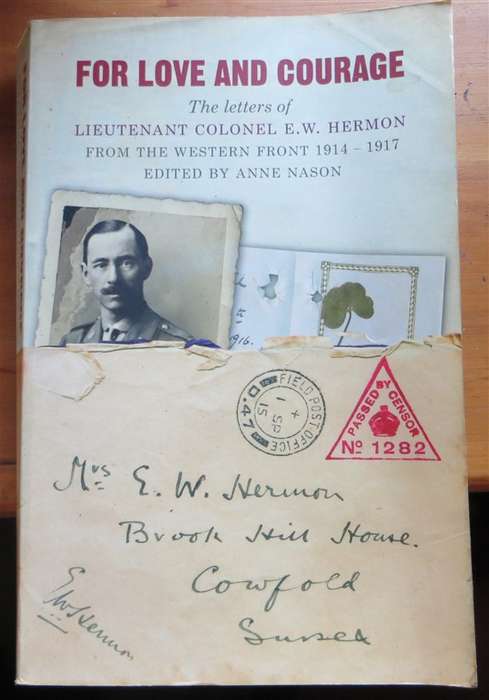 FOR LOVE AND COURAGE
The letters of
LIEUTENANT COLONEL E.W. HERMON
FROM THE WESTERN FRONT 1914 – 1917
EDITED BY ANNE NASON
1916.
FIELD POST OFFICE
1 SP
15
D.47
PASSED BY CENSOR
No 1282
Mrs E. W. Hermon
Brook Hill House.
Cowfold
Sussex
EWHermon